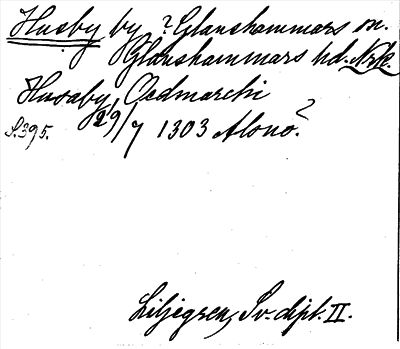 Husby by ? Glanshammars sn.
Glanshammars hd. Nrk.
Husaby, Oedmarchi
S. 395. 29/7 1303 Alono?
Liljegren, Sv. dipl. II.